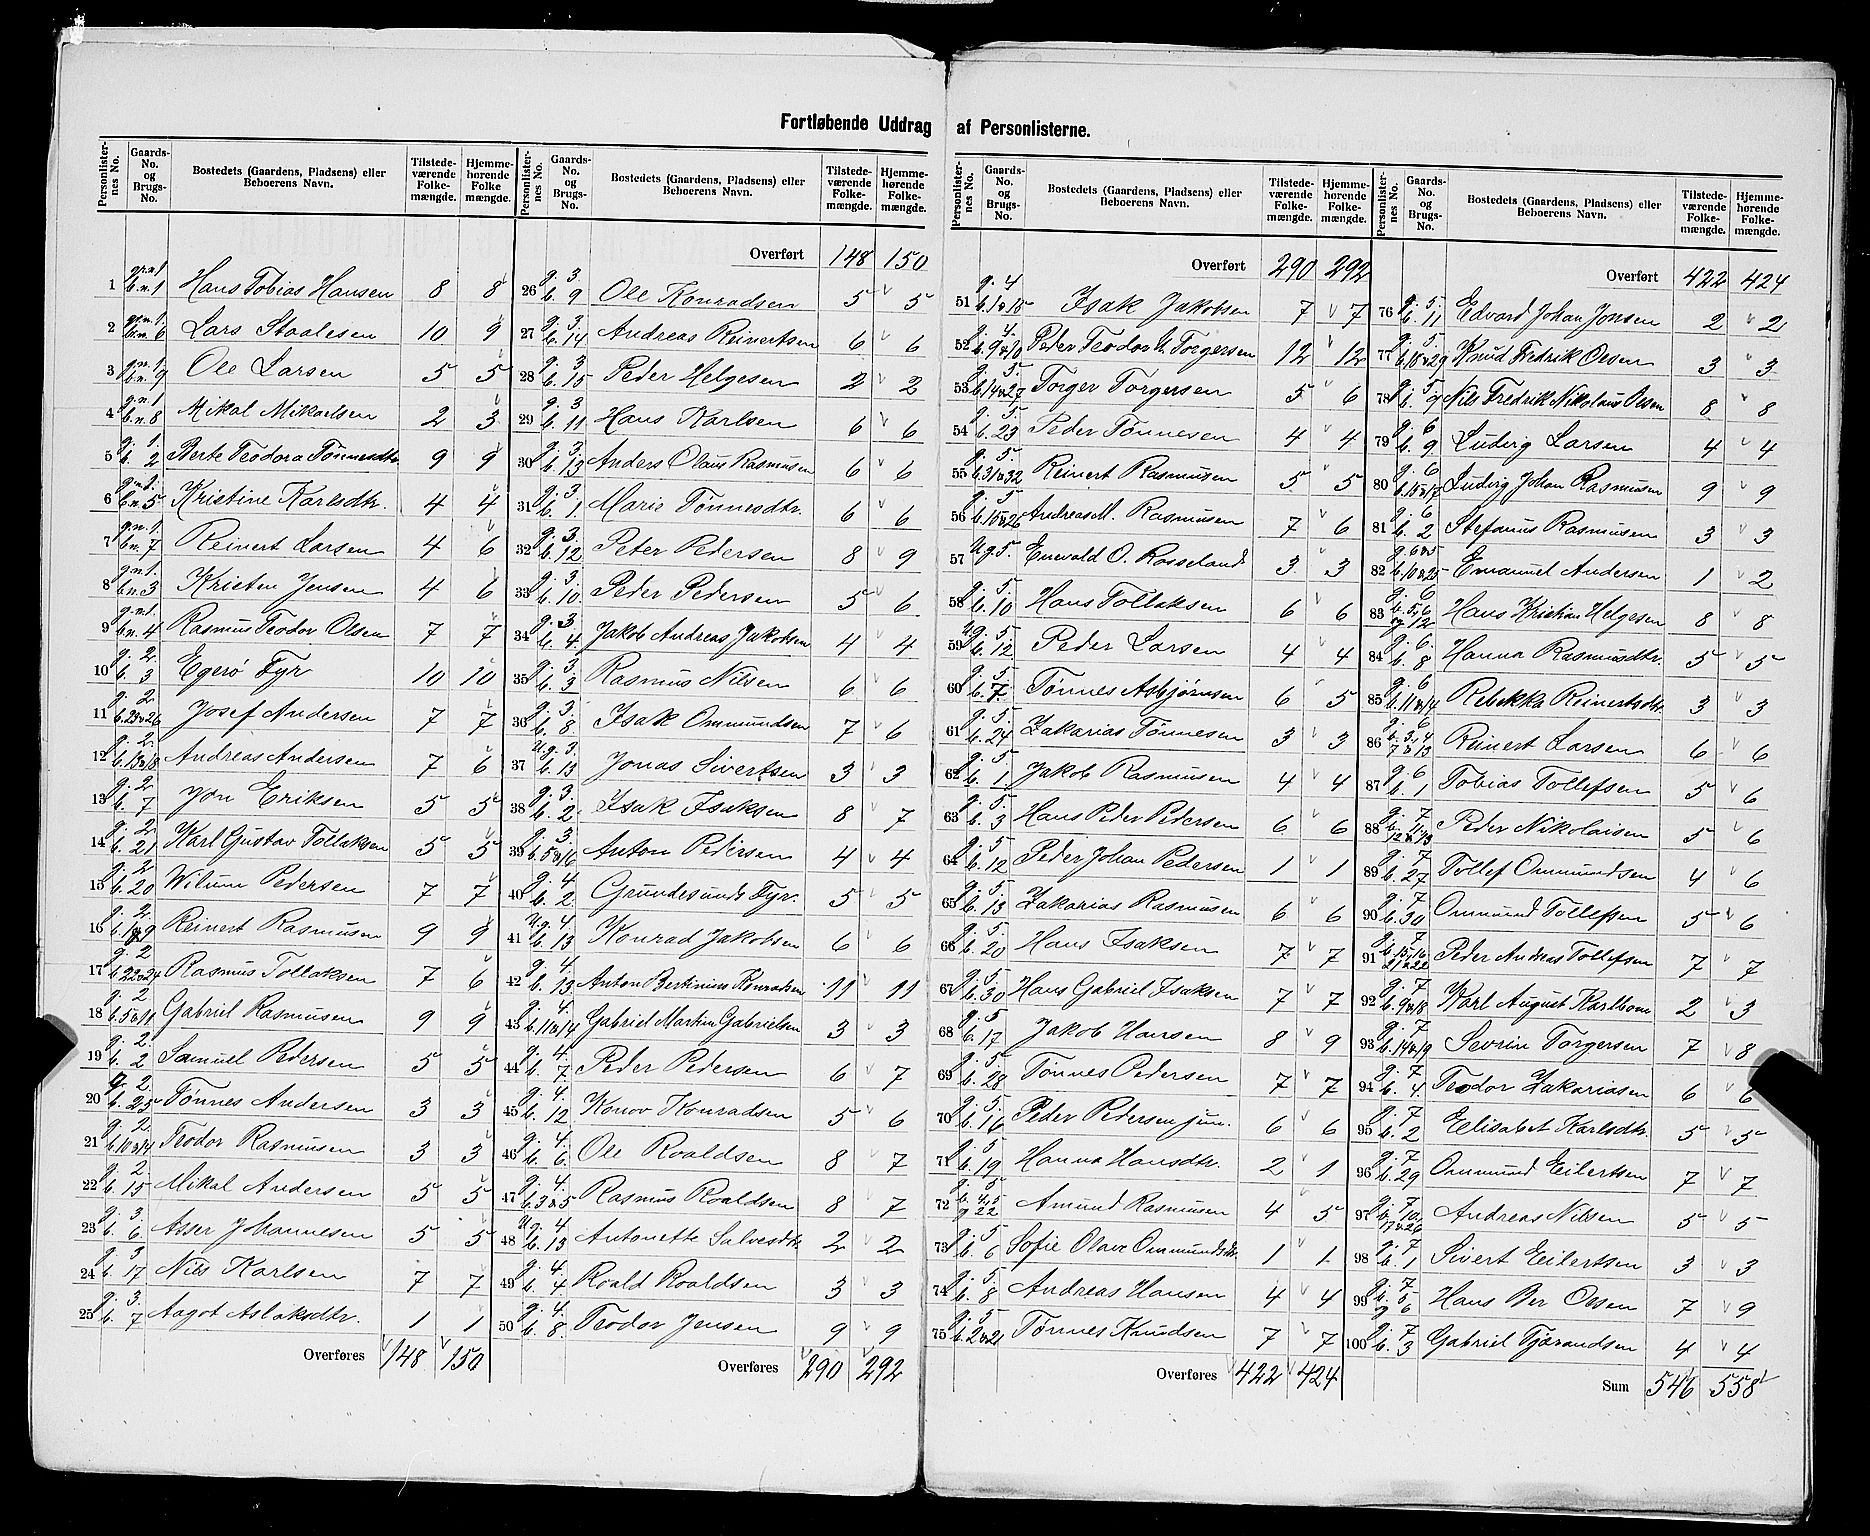 Fortløbende Uddrag af Personlisterne.
Personlisternes No. Gaards-No. og Brugs-No. Bostedets (Gaardens, Pladsens) eller Beboerens Navn. Tilstedeværende Folkemængde. Hjemmehørende Folkemængde.
1 gr.n.1 b.n.1 Hans Tobias Hansen 8 8
2 gr.n.1. b.n.6 Lars Staalesen 10 9
3 gr.n.1 b.n.9 Ole Larsen 5 5
4 g.n.1 b.n.8 Mikal Mikaelsen 2 3
5 g. 1. b. 2 Berte Teodora Tønnesdtr. 9 9
6 g.n.1. b.n.5 Kristine Karlsdtr. 4 4
7 g.n.1 b.n.7 Reinert Larsen 4 6
8 g.n.1. b.n.3 Kristen Jensen 4 6
9 g.n.1. b.n.4 Rasmus Teodor Olsen 7 7
10 g. 2. b. 3 Egerø Fyr 10 10
11 g. 2. b.23&26 Josef Andersen 7 7
12 g. 2. b.13&18 Andreas Andersen 7 6
13 g. 2 b. 7 Jon Eriksen 5 5
14 g. 2 b. 21 Karl Gustav Tollaksen 5 5
15 g. 2 b. 20 Wilum Pedersen 7 7
16 g. 2. Reinert Rasmusen 9 9
17 g. 2 b.22&24 Rasmus Tollaksen 7 6
18 g. 2 b.5&11 Gabriel Rasmusen 9 9
19 g. 2. b. 2 Samuel Pedersen 5 5
20 g. 2. b. 25 Tønnes Andersen 3 3
21 g. 2. b.10&14 Teodor Rasmusen 3 3
22 g. 2. b. 15 Mikal Andersen 5 5
23 g. 3 b. 6 Asser Johannesen 5 5
24 g. 3 b. 17 Nils Karlsen 7 7
25 g. 3. b. 7 Aagot Aslaksdtr. 1 1
Overføres 148 150
Personlisternes No. Gaards-No. og Brugs-No. Bostedets (Gaardens, Pladsens) eller Beboerens Navn. Tilstedeværende Folkemængde. Hjemmehørende Folkemængde.
Overført 148 150
26 g. 3 b. 9 Ole Konradsen 5 5
27 g. 3. b. 14 Andreas Reinertsen 6 6
28 g. 3 b. 15 Peder Helgesen 2 2
29 g. 3 b. 11 Hans Karlsen 6 6
30 g. 3. b. 13 Anders Olaus Rasmusen 6 6
31 g. 3. b. 1. Marie Tønnesdtr. 6 6
32 g. 3. b. 12 Peter Pedersen 8 9
33 g. 3. b. 10. Peder Pedersen 5 6
34 g. 3 b. 4 Jakob Andreas Jakobsen 4 4
35 g. 3. b. 3 Rasmus Nilsen 6 6
36 g. 3. b. 8 Isak Ommundsen 7 6
37 U.g. 3. b. 13 Jonas Sivertsen 3 3
38 g. 3. b. 2. Isak Isaksen 8 7
39 g. 3. b.5&16 Anton Pedersen 4 4
40 g. 4 b. 2. Grundesunds Fyr. 5 5
41 U.g. 4 b. 13 Konrad Jakobsen 6 6
42 g. 4. b. 13. Anton Bertinius Konradsen 11 11
43 g. 4. b.11&14 Gabriel Martin Gabrielsen 3 3
44 g. 4. b. 7 Peder Pedersen 6 7
45 g. 4. b. 12 Konov Konradsen 5 6
46 g. 4. b. 6 Ole Roaldsen 8 7
47 g. 4. b.3&5 Rasmus Roaldsen 8 7
48 U.g. 4 b. 13 Antonette Salvesdtr. 2 2
49 g. 4. b. 4 Roald Roaldsen 3 3
50 g. 4. b. 8. Teodor Jensen 9 9
Overføres 290 292
Personlisternes No. Gaards-No. og Brugs-No. Bostedets (Gaardens, Pladsens) eller Beboerens Navn. Tilstedeværende Folkemængde. Hjemmehørende Folkemængde.
Overført 290 292
51 g. 4 b.1&15 Isak Jakobsen 7 7
52 g. 4. b.9&10 Peder Teodor Torgersen 12 12
53 g. 5. b.14&27 Torger Torgersen 5 6
54 g. 5. b. 23 Peder Tønnesen 4 4
55 g. 5. b.31&32 Reinert Rasmusen 5 5
56 g. 5 b.15&26 Andreas M. Rasmusen 7 6
57 U.g.5. Enevald O. Rosseland 3 3
58 g. 5. b. 10 Hans Tollaksen 6 6
59 U.g. 5. b. 12 Peder Larsen 4 4
60 g. 5. b. 7. Tønnes Asbjørnsen 6 5
61 g. 5. b. 24 Zakarias Tønnesen 3 3
62 g. 5 b. 1. Jakob Rasmusen 4 4
63 g. 5. b. 3 Hans Peder Pedersen 6 6
64 g. 5. b. 12 Peder Johan Pedersen 1 1
65 g. 5 b. 13 Zakarias Rasmusen 6 6
66 g. 5. b. 20 Hans Isaksen 7 7
67 g. 5 b. 30 Hans Gabriel Isaksen 7 7
68 g. 5 b. 17 Jakob Hansen 8 9
69 g. 5 b. 28 Tønnes Pedersen 7 7
70 g. 5. b. 16 Peder Pedersen jun. 6 6
71 g. 5 b. 19 Hanna Hansdtr. 2 1
72 g. 5 b. 4, 5 og 22 Amund Rasmusen 4 5
73 g. 5. b. 6 Sofie Olave Ommundsdtr. 1 1
74 g. 5 b. 8 Andreas Hansen 4 4
75 g. 5 b.2&21 Tønnes Knudsen 7 7
Overføres 422 424
Personlisternes No. Gaards-No. og Brugs-No. Bostedets (Gaardens, Pladsens) eller Beboerens Navn. Tilstedeværende Folkemængde. Hjemmehørende Folkemængde.
Overført 422 424
76 g. 5. b. 11 Edvard Johan Jonsen 2 2
77 g. 5. b.18&29 Knud Fredrik Olsen 3 3
78 g. 5 b. 9 Nils Fredrik Nikolaus Olsen 8 8
79 g. 6 b. 9 Ludvig Larsen 4 4
80 g. 6 b.15&17 Ludvig Johan Rasmusen 9 9
81 g. 6 b. 2 Stefanus Rasmusen 3 3
82 g. 6&5 b.10&25 Emanuel Andersen 1 2
83 g. 6 b. 5, 6 og 12 Hans Kristian Helgesen 8 8
84 g. 6. b. 8 Hanna Rasmusdtr. 5 5
85 g. 6 b.11&14 Rebekka Reinertsdtr. 3 3
86 g. 6 b. 3, 4 7 & 13 Reinert Larsen 6 6
87 g. 6 b. 1 Tobias Tollefsen 5 6
88 g. 7 b. 11, 12 & 13 Peder Nikolaisen 5 6
89 g. 7 b. 27 Tollef Ommundsen 4 6
90 g. 7 b. 30 Ommund Tollefsen 5 6
91 g. 7 b. 15, 16 21 & 22 Peder Andreas Tollefsen 7 7
92 g. 7 b.9&18 Karl August Karlbom 2 3
93 g. 7 b.14&19 Sevrin Torgersen 7 8
94 g. 7 b. 4. Teodor Zakariasen 6 6
95 g. 7 b. 2 Elisabet Karlsdtr. 5 5
96 g. 7 b. 29 Ommund Eilertsen 7 7
97 g. 7 b. 10, 17 & 26 Andreas Nilsen 5 5
98 g. 7 b. 1 Sivert Eilertsen 3 3
99 g. 7 b. 5 og 6 Hans Ber Olsen 7 9
100 g. 7 b. 3 Gabriel Tjørandsen 4 4
Sum 546 558